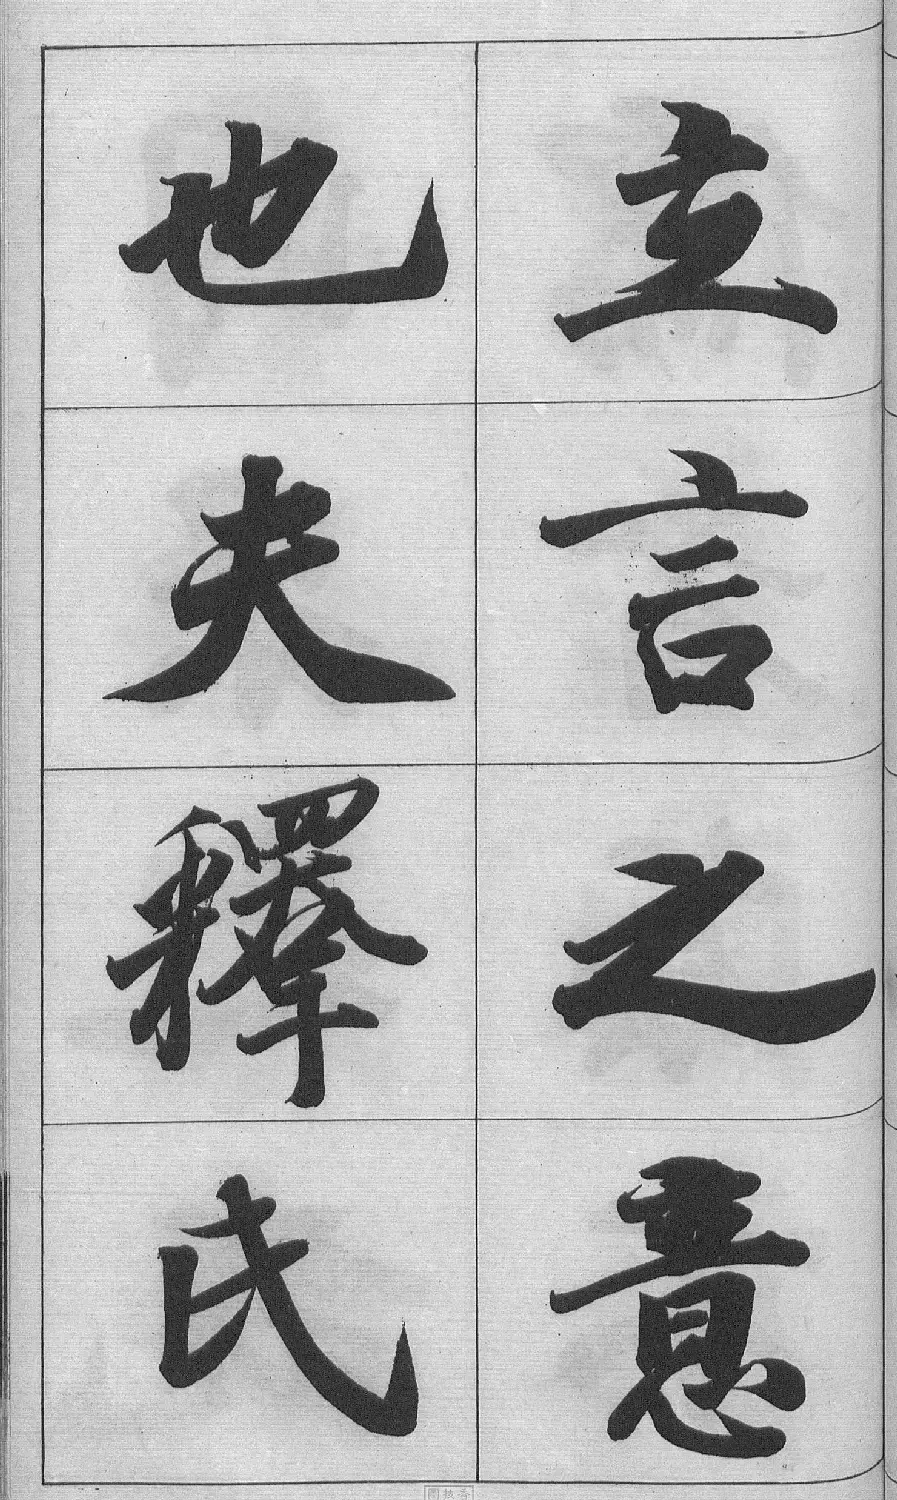 立言之意
也夫釋氏